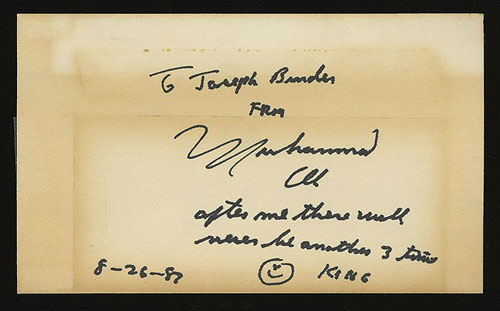 To Joseph Binder
FROM
Muhammad
Ali
after me there will
never be another 3 time
8-26-87 KING